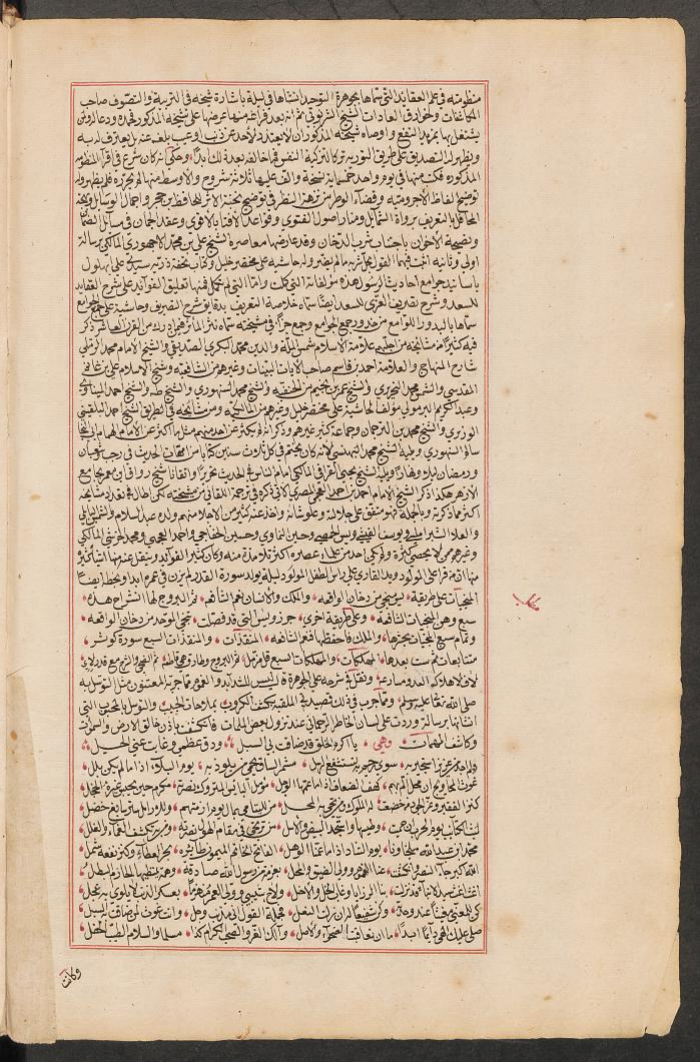 منظومته في علم العقايد التي سماها بجوهرة التوحيد انشاها في ليلة باشارة شيخه في التربية والتصوف صاحب
المكاشفات وخوارق العادات الشيخ الشرنوبي ثم انه بعد فراغه منها عرضها على شيخه المذكور فحمده ودعا له ولمن
يشتغل بها بمزيد النفع واوصاه شيخه المذكور ان لا يعتذر لاحد عن ذنب او عيب بلغه عنه بل يعترف له به
ويظهر له التصديق على طريق التورية تركا لتزكية النفس فما خالفه بعد ذلك ابدا وحكى انه كان شرع في اقراء المنظومة
المذكورة فكتب منها في يوم واحد خمسماية نسخة والف عليها ثلاثة شروح والاوسط منها لم يحرره فلم يظهر وله
توضيح الفاظ الاجرومية وقضاء الوطر من نزهة النظر في توضيح نخبة الاثر للحافظ ابن حجر واجمال الوسايل وبهجة
المحافل بالتعريف برواة الشمايل ومنار اصول الفتوى وقواعد الافتا بالاقوى وعقد الجمان في مسايل الضمان
ونصيحة الاخوان باجتناب شرب الدخان وقد عارضها معاصره الشيخ علي بن محمد الاجهوري المالكي برسالة
اولى وثانية اثبت فيهما القول بحل شربه مالم يضر وله حاشية على مختصر خليل وكتاب تحفة درية على ابهلول
باسانيد جوامع احاديث الرسول هذه مولفاته التي كملت واما التي لم تكمل فمنها تعليق الفوايد على شرح العقايد
للسعد وشرح تصريف العزي للسعد ايضا سماه خلاصة التعريف بدقايق شرح التصريف وحاشية على جمع الجوامع
سماها بالبدور اللوامع من خدور جمع الجوامع وجمع جزأ في مشيخته سماه نثر المآثر فيمن ادرك من القرن العاشر ذكر
فيه كثيرا من مشايخه من اجلهم علامة الاسلام شمس الملة والدين محمد البكري الصديقي والشيخ الامام محمد الرملي
شارح المنهاج والعلامة احمد بن قاسم صاحب الايات البينات وغيرهم من الشافعية وشيخ الاسلام علي بن غانم
المقدسي والشمس محمد النحريري والشيخ عمر بن نجيم من الحنفية والشيخ محمد السنهوري والشيخ طه والشيخ احمد المنياوي
وعبد الكريم البرموني مولف الحاشية على مختصر خليل وغيرهم من المالكية ومن مشايخه في الطريق الشيخ احمد البلقيني
الوزيري والشيخ محمد بن الترجمان وجماعة كثير غيرهم وذكر انه لم يكثر عن احد منهم مثل ما اكثر عن الامام الهمام ابي النجا
سالم السنهوري ويليه الشيخ محمد البهنسي لانه كان يختم في كل ثلاث سنين كتابا من امهات الحديث في رجب وشعبان
ورمضان ليلا ونهارا ويليه الشيخ يحيى القرافي المالكي امام الناس في الحديث تحريرا واتقانا شيخ رواق ابن معمر بجامع
الازهر هكذا ذكر الشيخ الامام احمد بن احمد العجمي المصري الاتي ذكره في ترجمة اللقاني من مشيخته لكن اطال في تعداد مشايخه
اكثر مما ذكرته وبالجملة فهو متفق على جلالته وعلو شانه واخذ عنه كثير من الاجلاء منهم ولده عبد السلام والشمس البابلي
والعلا الشبراملسي ويوسف الفيشي ويس الحمصي وحسين النماوي وحسين الخفاجي واحمد العجمي ومحمد الخرشي المالكي
وغيرهم ممن لا يحصى كثرة ولم يكن احد من علماء عصره اكثر تلامذة منه وكان كثير الفوايد وينقل عنه منها اشيا كثيرة
منها ان من قرأ على المولود ويد القاري على راس الطفل المولود ليلة يولد سورة القدر لم يزن في عمره ابدا وبخطه ايضا
المنجيات على طريقة يس تنجي من دخان الواقعة والملك والانسان نعم الشافعة ثم البروج لها انشراح هذه
سبع وهن المنجيات النافعة وعلى طريقة اخرى جرز ويس التي قد فصلت تنجي الموحد من دخان الواقعة
وتمام سبع المنجيات بحشرها والملك فاحفظها فهي الشافعة المنقذات والمنقذات السبع سورة كوثر
متتابعات ثم ست بعدها المهلكات والمهلكات السبع قل مزمل ثم البروج وطارق هي قاطعة ثم الضحى والشرح مع قدر لايلاف
لاهلاك العدو مسارعة ونقل في شرحه على الجوهرة قال ليس للشدايد والغموم مما جربه المعتنون مثل التوسل به
صلى الله تعالى عليه وسلم ومما جرب في ذلك قصيدتي الملقبة بكشف الكروب بملاذات الحبيب والتوسل بالمحبوب التي
انشاتها برسالة وردت على لسان الخاطر الرحماني عند نزول بعض الملمات فانكشفت باذن خالق الارض والسموات
وكاشف المهمات وهي يا اكرم الخلق قد ضاقت بي السبل ودق عظمي وغابت عني الحيل
ولم اجد من عزيز استجير به سوى رحيم به تستشفع الرسل مشمر الساق يحمي من يلوذ به يوم البلاء اذا ما لم يكن بلل
غوث المحاويج ان محل الم بهم كهف الضعاف اذا ما عمها الوجل مؤمل البائس المتروك نصرته مكرم حين يغشى سره الخجل
كنز الفقير وعز الجود من خضعت له الملوك ومن تحيى به المحل من لليتامى بمال يوم ازمتهم وللارامل ستر سابغ خضل
ليث الكتائب يوم الحرب ان حميت وطيسها واستحد البيض والاسل من ترتجى في مقام الهول نصرته ومن به تكشف الغماء والغلل
محمد ابن عبد الله ملجاؤنا يوم التناد اذا ما عمنا الوهل الفاتح الخاتم الميمون طائره بحر العطاء وكنز نفعه شمل
الله اكبر جاء النصر وانكشفت عنا الغموم وولى الضيق والمحل بعزمة من رسول الله صادقة وهمة يمتطيها الحازم البطل
اغث اغث سيد الكونين قد نزلت بنا الرزايا وغاب الخل والاخل ولاح شيبي وولى العمر منهزما بعسكر الذنب لا يلوي به عجل
كن للمعنى مغيثا عند وحدته وكن شفيعا له ان زلت النعل فجملة القول اني مذنب وجل وانت غوث لمن ضاقت به السبل
صلى عليك الهي دايما ابدا ما ان تعاقبت الضحواء والاصل وآلك الغر والصحب الكرام كذا مسلما والسلام الطيب الحفل
وكانت